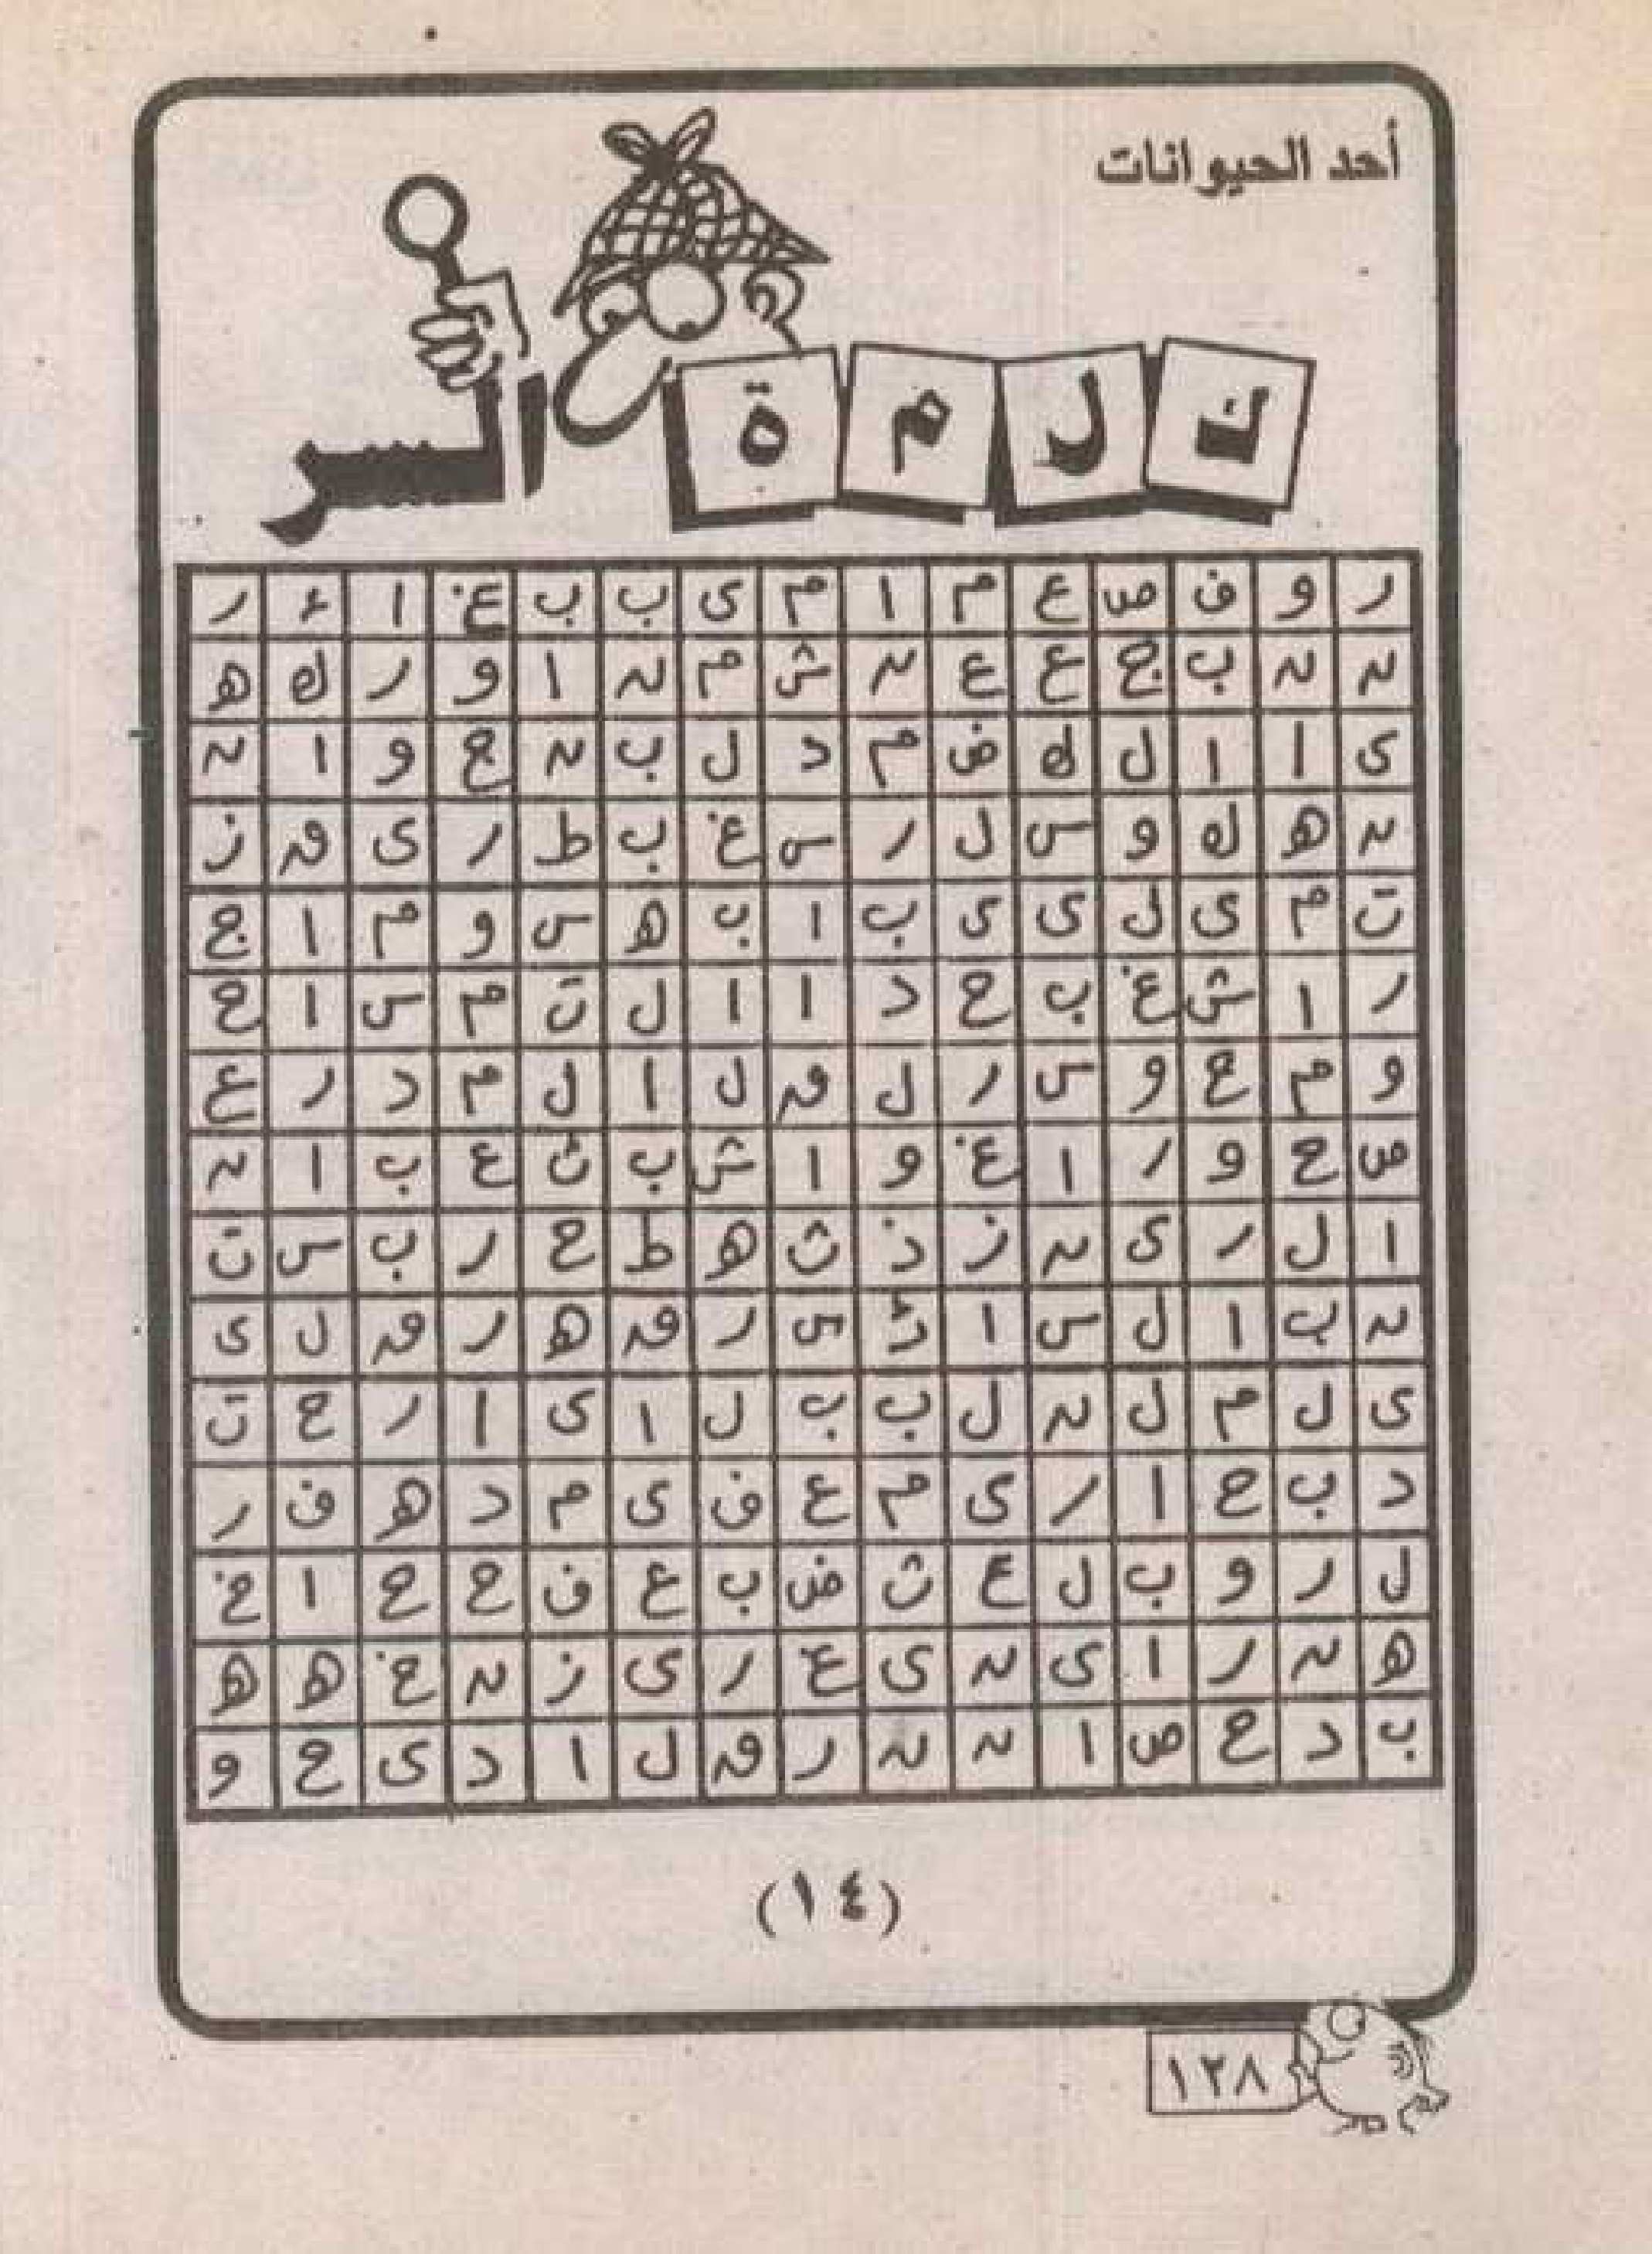 أحد الحيوانات
ك ل م ة السر
ر و ف ص ع م ا م ى ب ب غ ا ء ر
ن ن ب ج ع ع ن ش م ن ا و ر ك ه
ى ا ا ل ك ض م د ل ب ن ح و ا ن
ن ه ك و س ل ر س غ ب ط ر ى ق ز
ت م ى ل ى ى ب ا ب ه س و م ا ج
ر ا ش غ ب ح د ا ا ل ت م س ا ح
و م ح و س ر ل ق ل ا ل م د ر ع
ص ح و ر ا غ و ا ش ب ث ع ب ا ن
ا ل ر ى ن ز ذ ث ه ط ح ر ب س ت
ن ب ا ل س ا ث س ر ق ه ر ق ل ى
ى ل م ل ن ل ب ب ل ا ى ا ر ح ت
د ب ح ا ر ى م ع ف ى م د ه ف ر
ل ر و ب ل ع ث ض ب ع ف ح ح ا خ
ه ن ر ا ى ن ى ع ر ى ز ن خ ه ه
ب د ح ص ا ن ن ر ق ل ا د ى ح و
(١٤)
١٢٨